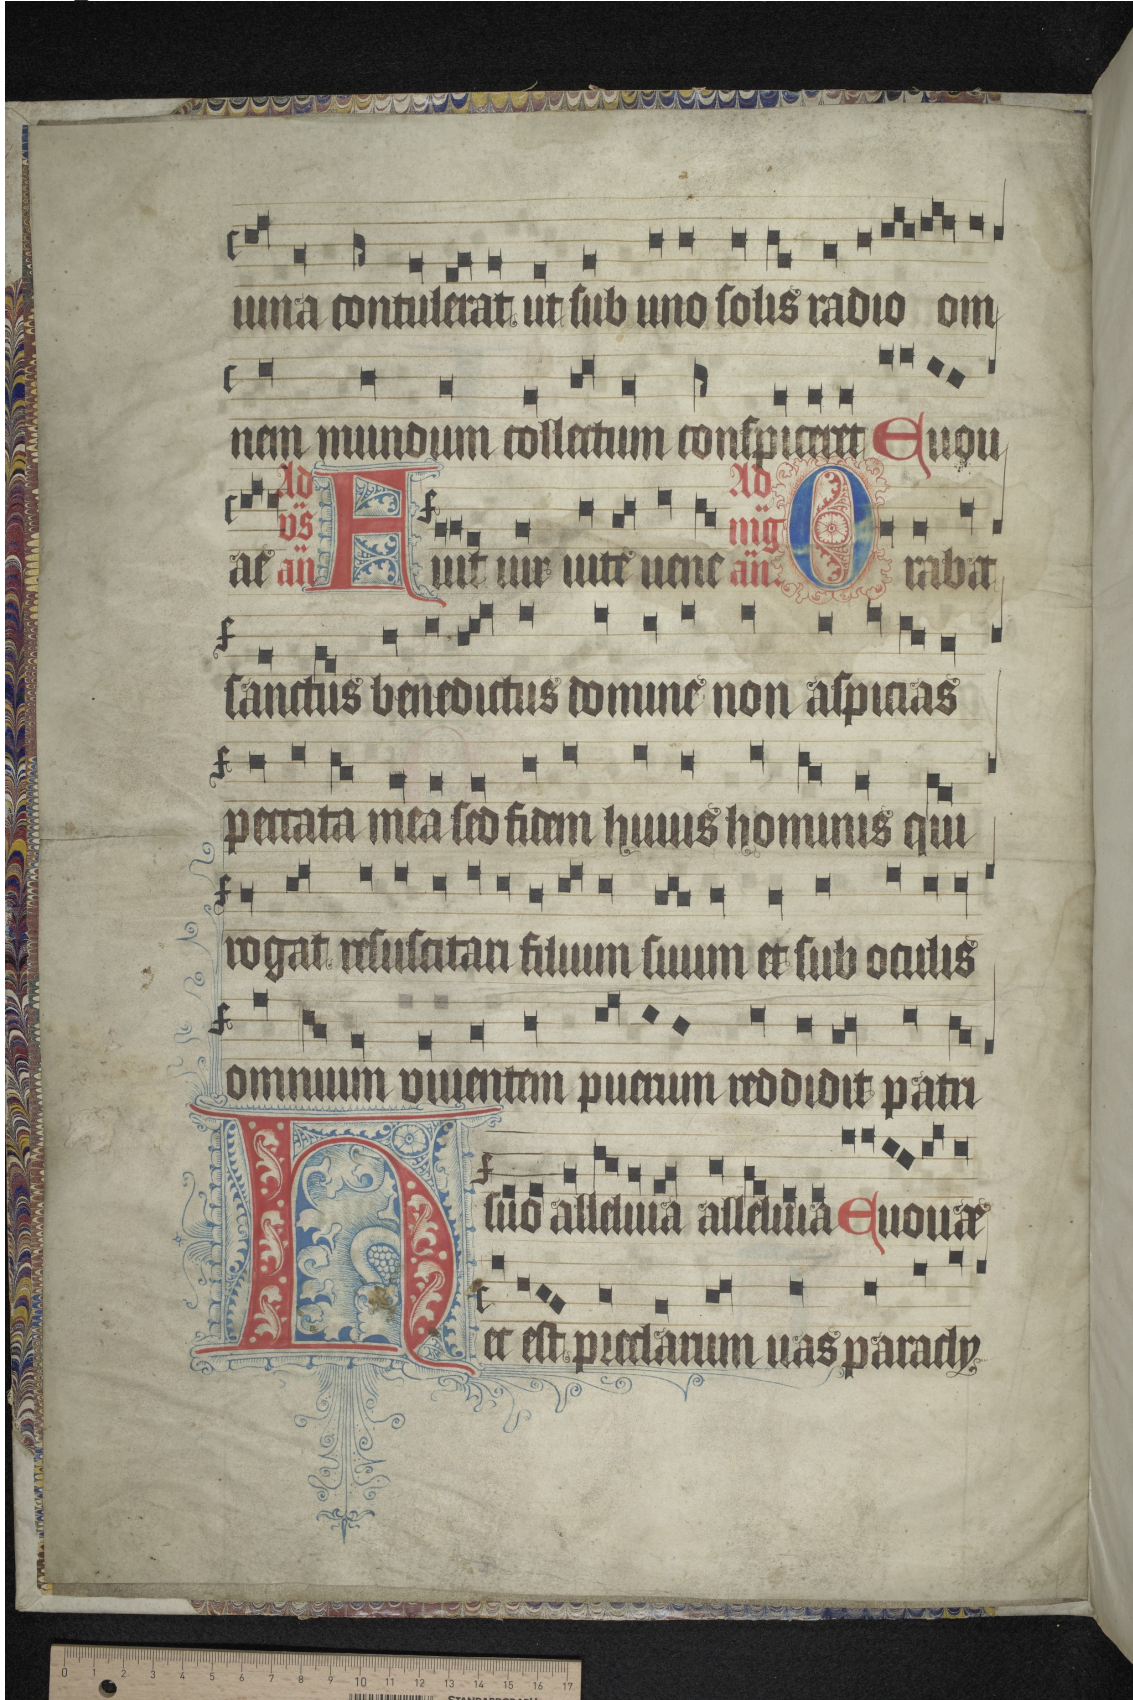 uina contulerat ut sub uno solis radio om
nem mundum collectum conspiceret Euou
ae Ad vs an Fuit uir uite uene Ad mg an O rabat
sanctus benedictus domine non aspicias
peccata mea sed fidem huius hominis qui
rogat resuscitari filium suum et sub oculis
omnium viuentem puerum reddidit patri
suo alleluia alleluia Euouae
Hec est preclarum uas parady
0 1 2 3 4 5 6 7 8 9 10 11 12 13 14 15 16 17